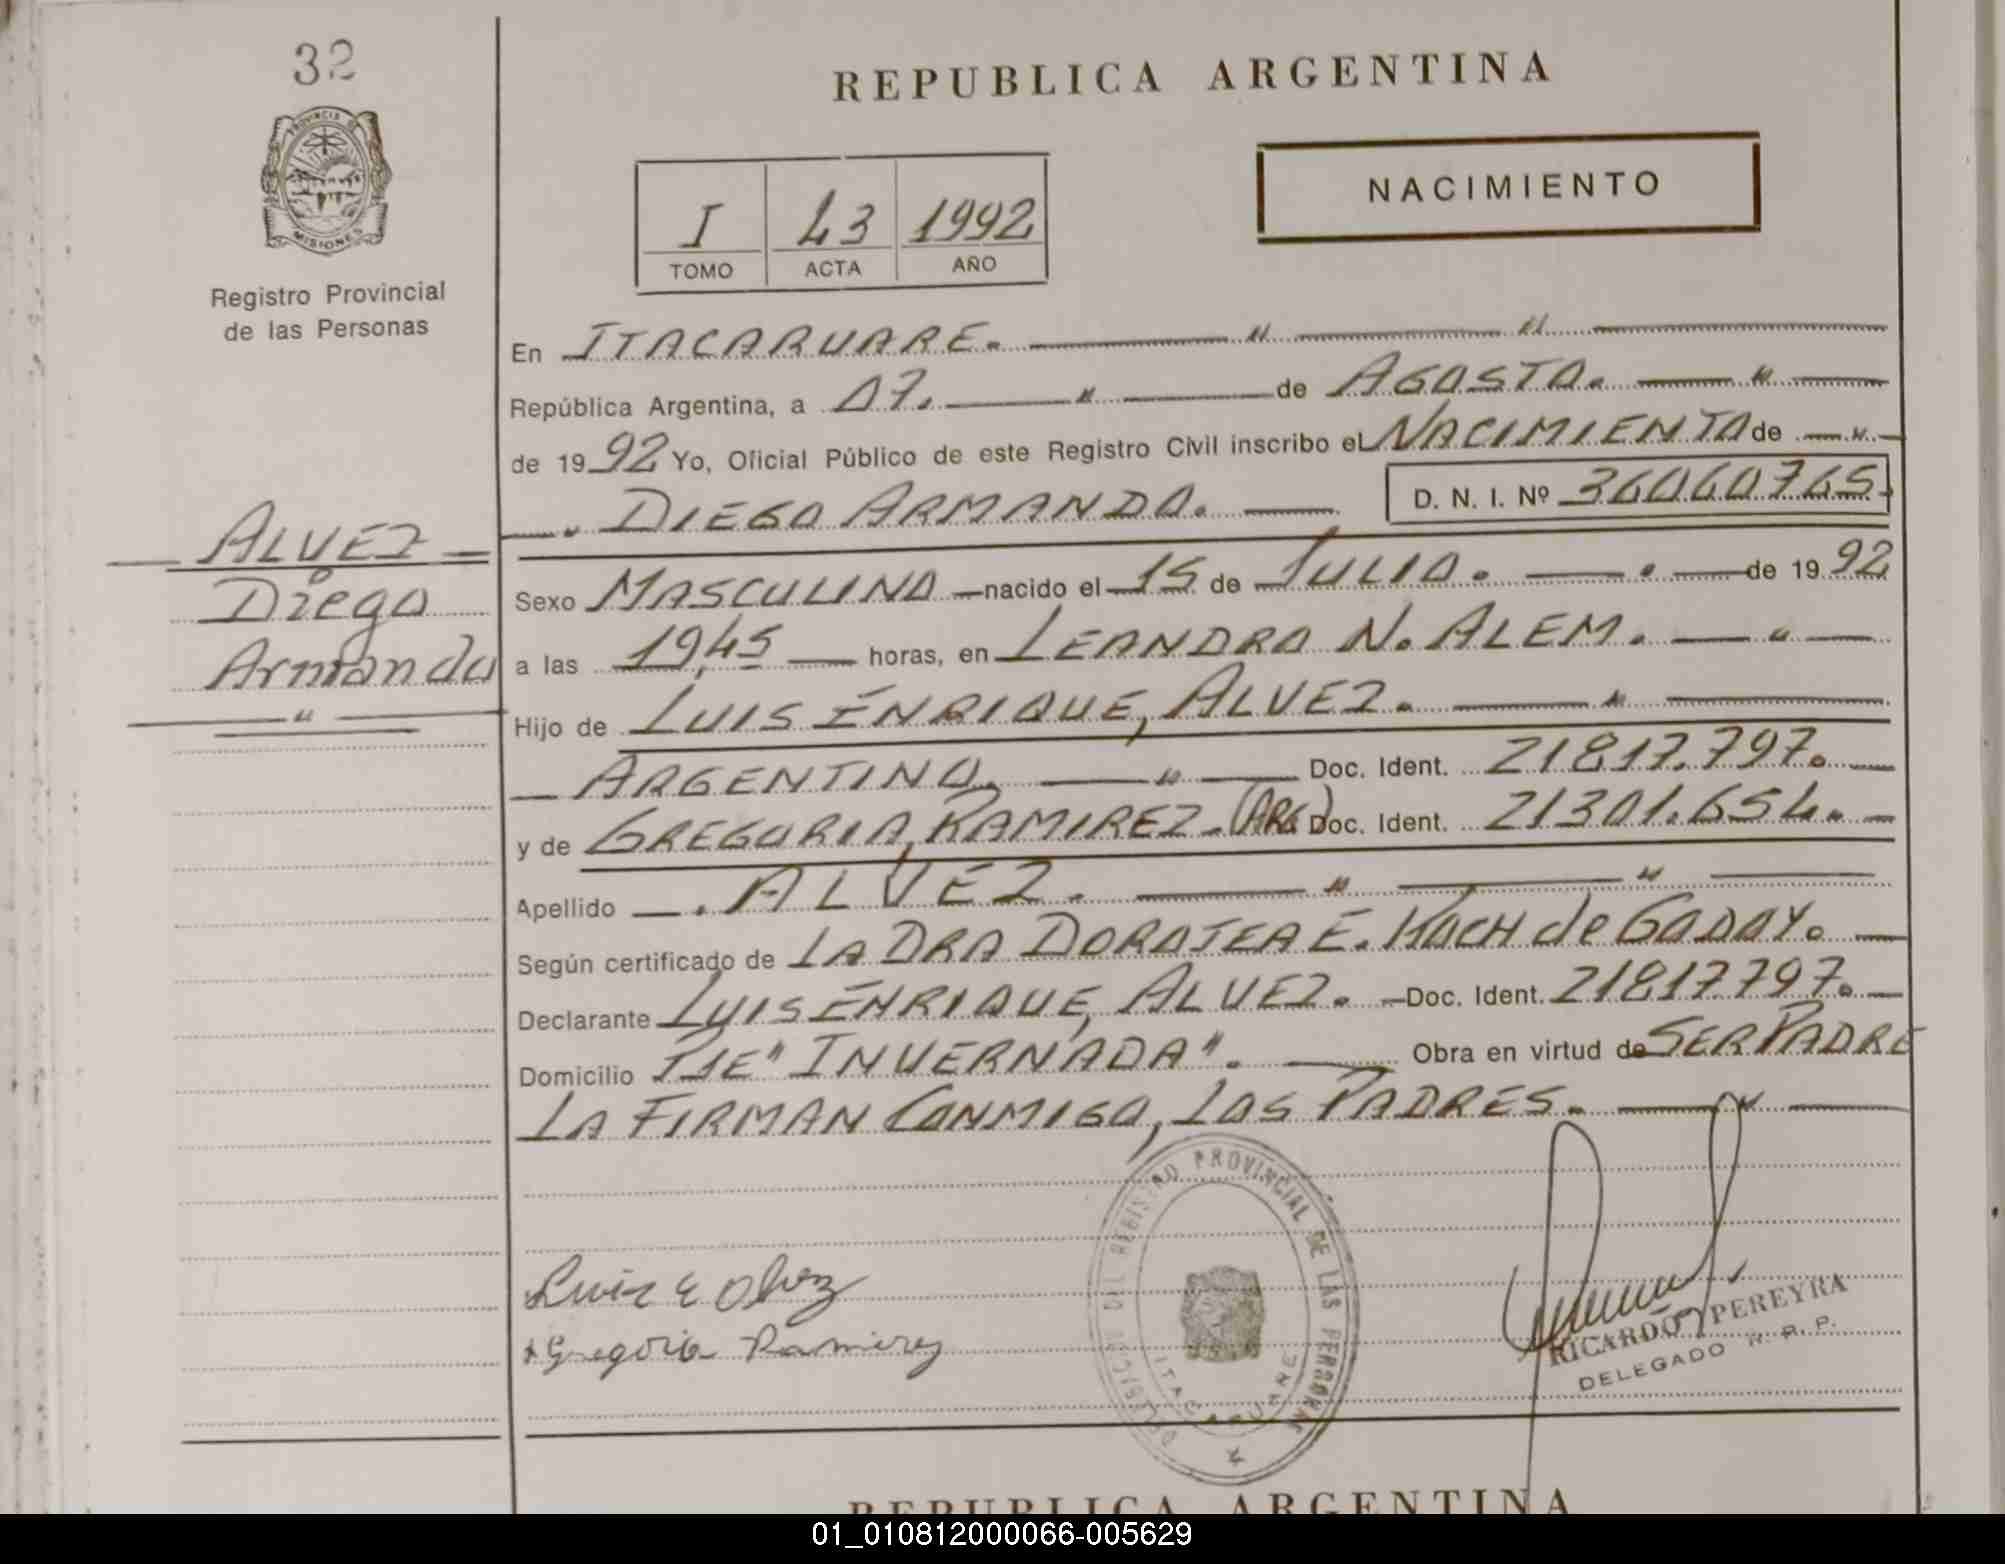 32
REPUBLICA ARGENTINA
PROVINCIA DE
MISIONES
Registro Provincial
de las Personas
I 43 1992
TOMO ACTA AÑO
NACIMIENTO
En ITACARUARE.
República Argentina, a 07. de AGOSTO.
de 1992 Yo, Oficial Público de este Registro Civil inscribo el NACIMIENTO de
DIEGO ARMANDO. D. N. I. Nº 36060765.
ALVEZ
Diego
Armando
Sexo MASCULINO nacido el 15 de JULIO. de 1992
a las 19,45 horas, en LEANDRO N. ALEM.
Hijo de LUIS ENRIQUE, ALVEZ.
ARGENTINO. Doc. Ident. 21817.797.
y de GREGORIA, RAMIREZ. (ARG) Doc. Ident. 21301.654.
Apellido ALVEZ.
Según certificado de LA DRA DOROTEA E. KOCH de GODOY.
Declarante LUIS ENRIQUE, ALVEZ. Doc. Ident. 21817.797.
Domicilio PJE "INVERNADA". Obra en virtud de SER PADRE
LA FIRMAN CONMIGO, LOS PADRES.
DEL REGISTRO PROVINCIAL DE LAS PERSONAS
ITACARUARE
Luis E Alvez
Gregoria Ramirez
RICARDO PEREYRA
DELEGADO R. R. P.
REPUBLICA ARGENTINA
01_010812000066-005629